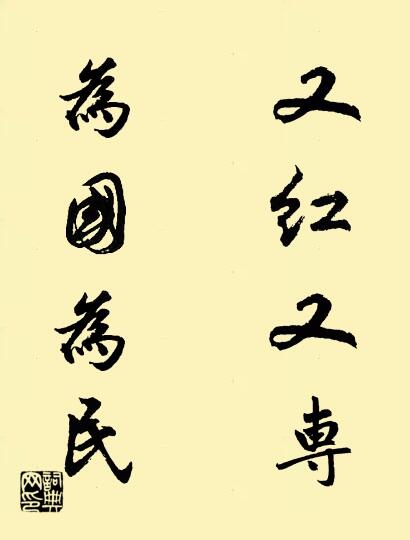 又红又専
為國為民
詞典网印